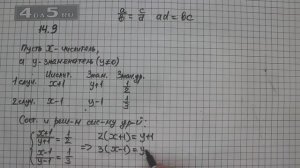 4АЛ5.RU
a/b = c/d ad = bc
14.9
Пусть x-числитель,
а y-знаменатель (y≠0)
Числит. Знам. Знач. др.
1 случ. x+1 y+1 1/2
2 случ. x-1 y-1 1/3
Сост. и реш-м сис-му ур-й:
{ x+1/y+1 = 1/2 2(x+1)=y+1
x-1/y-1 = 1/3 => 3(x-1)=y